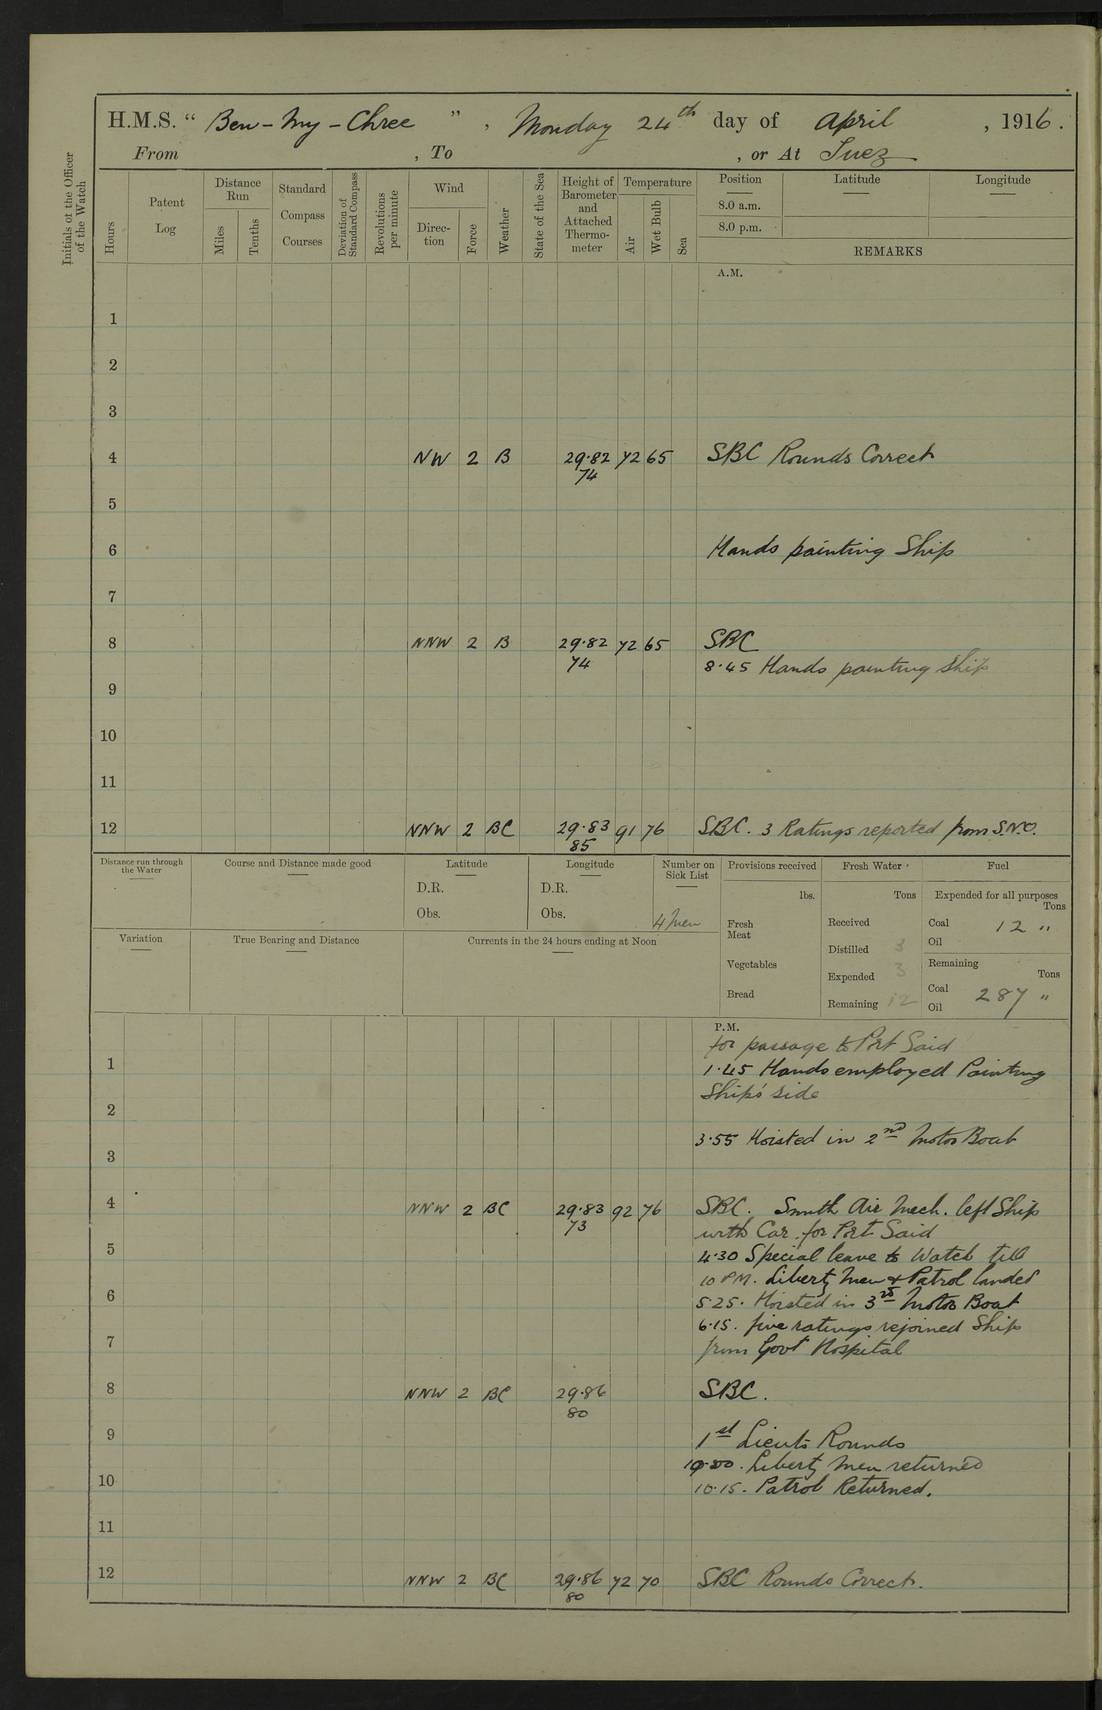 H.M.S. “ Ben-My-Chree ” , Monday 24th day of April , 1916.
From , To , or At Suez
Initials of the Officer of the Watch
Hours
Patent Log
Distance Run
Miles
Tenths
Standard Compass Courses
Deviation of Standard Compass
Revolutions per minute
Wind
Direc-tion
Force
Weather
State of the Sea
Height of Barometer and Attached Thermo-meter
Temperature
Air
Wet Bulb
Sea
Position
8.0 a.m.
8.0 p.m.
Latitude
Longitude
REMARKS
A.M.
1
2
3
4 NW 2 B 29.82 72 65 SBC Rounds Correct
74
5
6 Hands painting Ship
7
8 NNW 2 B 29.82 72 65 SBC
74 8.45 Hands painting Ship
9
10
11
12 NNW 2 BC 29.83 91 76 SBC. 3 Ratings reported from S.N.O.
85
Distance run through the Water
Course and Distance made good
Latitude
D.R.
Obs.
Longitude
D.R.
Obs.
Number on Sick List
4 Men
Provisions received
lbs.
Fresh Meat
Vegetables
Bread
Fresh Water
Tons
Received
Distilled 3
Expended 3
Remaining 12
Fuel
Expended for all purposes
Tons
Coal 12 "
Oil
Remaining
Tons
Coal 287 "
Oil
Variation
True Bearing and Distance
Currents in the 24 hours ending at Noon
P.M.
for passage to Port Said
1 1.45 Hands employed Painting
Ship's side
2
3.55 Hoisted in 2nd Motor Boat
3
4 NNW 2 BC 29.83 92 76 SBC. Smith Air Mech. left Ship
73 with Car for Port Said
5 4.30 Special leave to Watch till
10 PM. Liberty Men & Patrol landed
6 5.25. Hoisted in 3rd Motor Boat
6.15. five ratings rejoined Ship
7 from Govt Hospital
8 NNW 2 BC 29.86 SBC.
80
9 1st Lieuts Rounds
10.00. Liberty Men returned
10 10.15. Patrol Returned.
11
12 NNW 2 BC 29.86 72 70 SBC Rounds Correct.
80